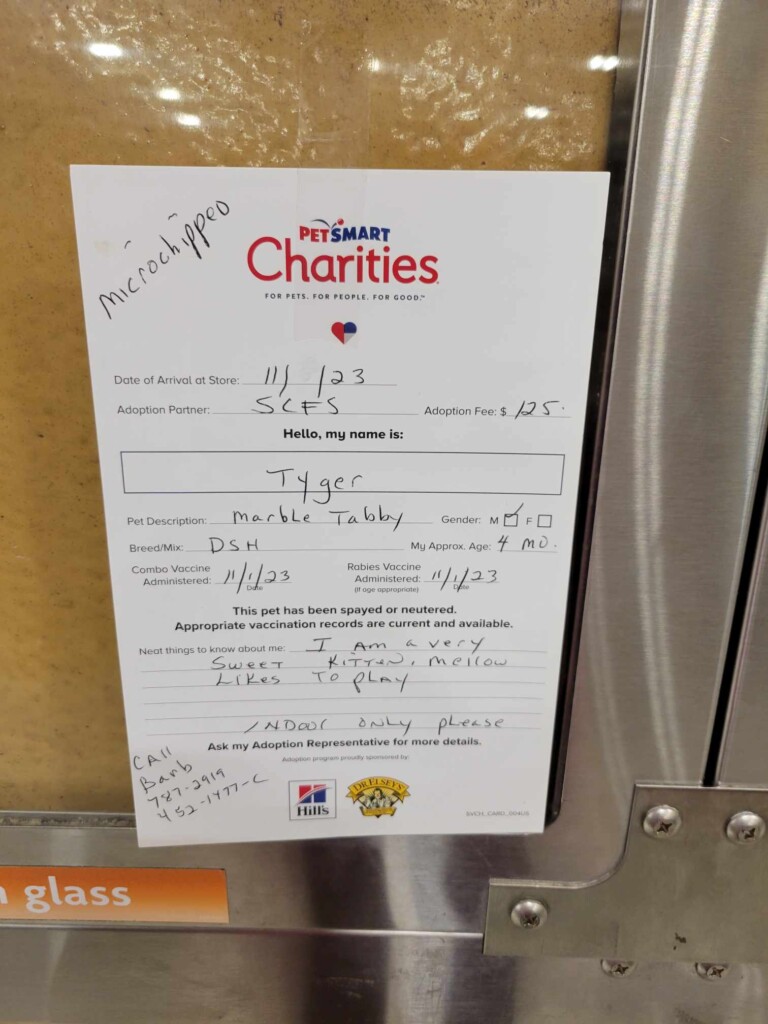 Microchipped
PETSMART
Charities
FOR PETS. FOR PEOPLE. FOR GOOD.™
Date of Arrival at Store: 11/ /23
Adoption Partner: SCFS Adoption Fee: $ 125.
Hello, my name is:
Tyger
Pet Description: Marble Tabby Gender: M F
Breed/Mix: DSH My Approx. Age: 4 mo.
Combo Vaccine Administered: 11/1/23 Date
Rabies Vaccine Administered: 11/1/23 Date
(If age appropriate)
This pet has been spayed or neutered.
Appropriate vaccination records are current and available.
Neat things to know about me: I Am a very
Sweet Kitten, mellow
Likes To play
INDOOR only please
Ask my Adoption Representative for more details.
Adoption program proudly sponsored by:
CAll
Barb
787-2919
452-1477-C
Hill's
DR. ELSEY'S
glass